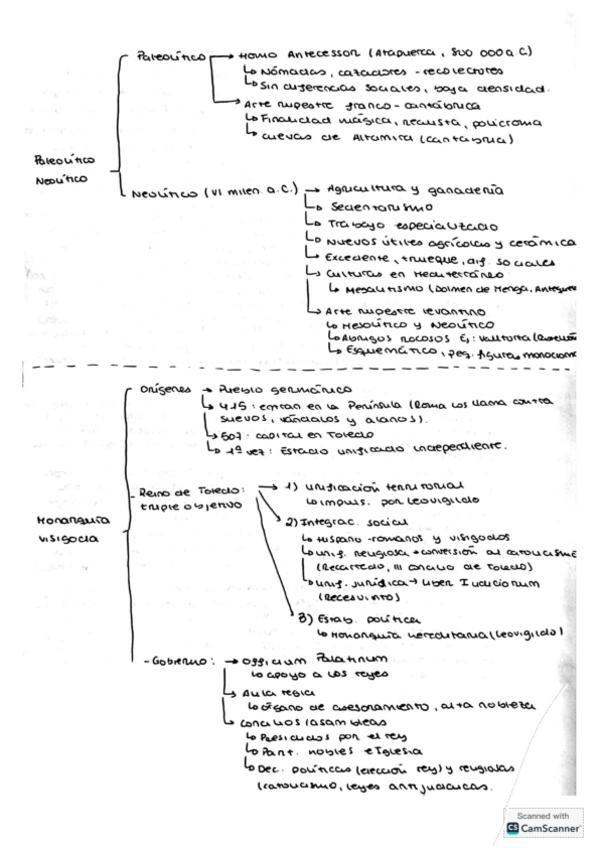 Paleolítico
Neolítico
Paleolítico → Homo Antecessor (Atapuerca, 800 000 a.C)
↳ Nómadas, cazadores-recolectores
↳ Sin diferencias sociales, baja densidad.
→ Arte rupestre franco-cantábrica
↳ Finalidad mágica, realista, policroma
↳ Cuevas de Altamira (Cantabria)
Neolítico (VI milen. a.C.) → Agricultura y ganadería
↳ Sedentarismo
↳ Trabajo especializado
↳ Nuevos útiles agrícolas y cerámica
↳ Excedente, trueque, dif. sociales
↳ Culturas en Mediterráneo
↳ Megalitismo (Dolmen de Menga, Anteque
→ Arte rupestre levantino
↳ Mesolítico y Neolítico
↳ Abrigos rocosos Ej: Valltorta
↳ Esquemático, peq. figuras, monocrom
Monarquía
visigoda
Orígenes → Pueblo germánico
↳ 415: entran en la Península (Roma los llama contra
suevos, vándalos y alanos).
↳ 507: capital en Toledo
↳ 1ª vez: Estado unificado independiente.
- Reino de Toledo:
triple objetivo
→ 1) Unificación territorial
↳ impuls. por Leovigildo
2) Integrac. social
↳ Hispano-romanos y visigodos
↳ unif. religiosa → conversión al catolicismo
(Recaredo, III Concilio de Toledo)
↳ unif. jurídica → Liber Iudiciorum
(Recesvinto)
3) Estab. política
↳ Monarquía hereditaria (Leovigildo)
- Gobierno: → Officium Palatinum
↳ apoyo a los reyes
↳ Aula regia
↳ órgano de asesoramiento, alta nobleza
↳ Concilios (asambleas
↳ Presididos por el rey
↳ Part. nobles e Iglesia
↳ Dec. políticas (elección rey) y religiosas
(catolicismo, leyes antijudaicas.
Scanned with
CS CamScanner